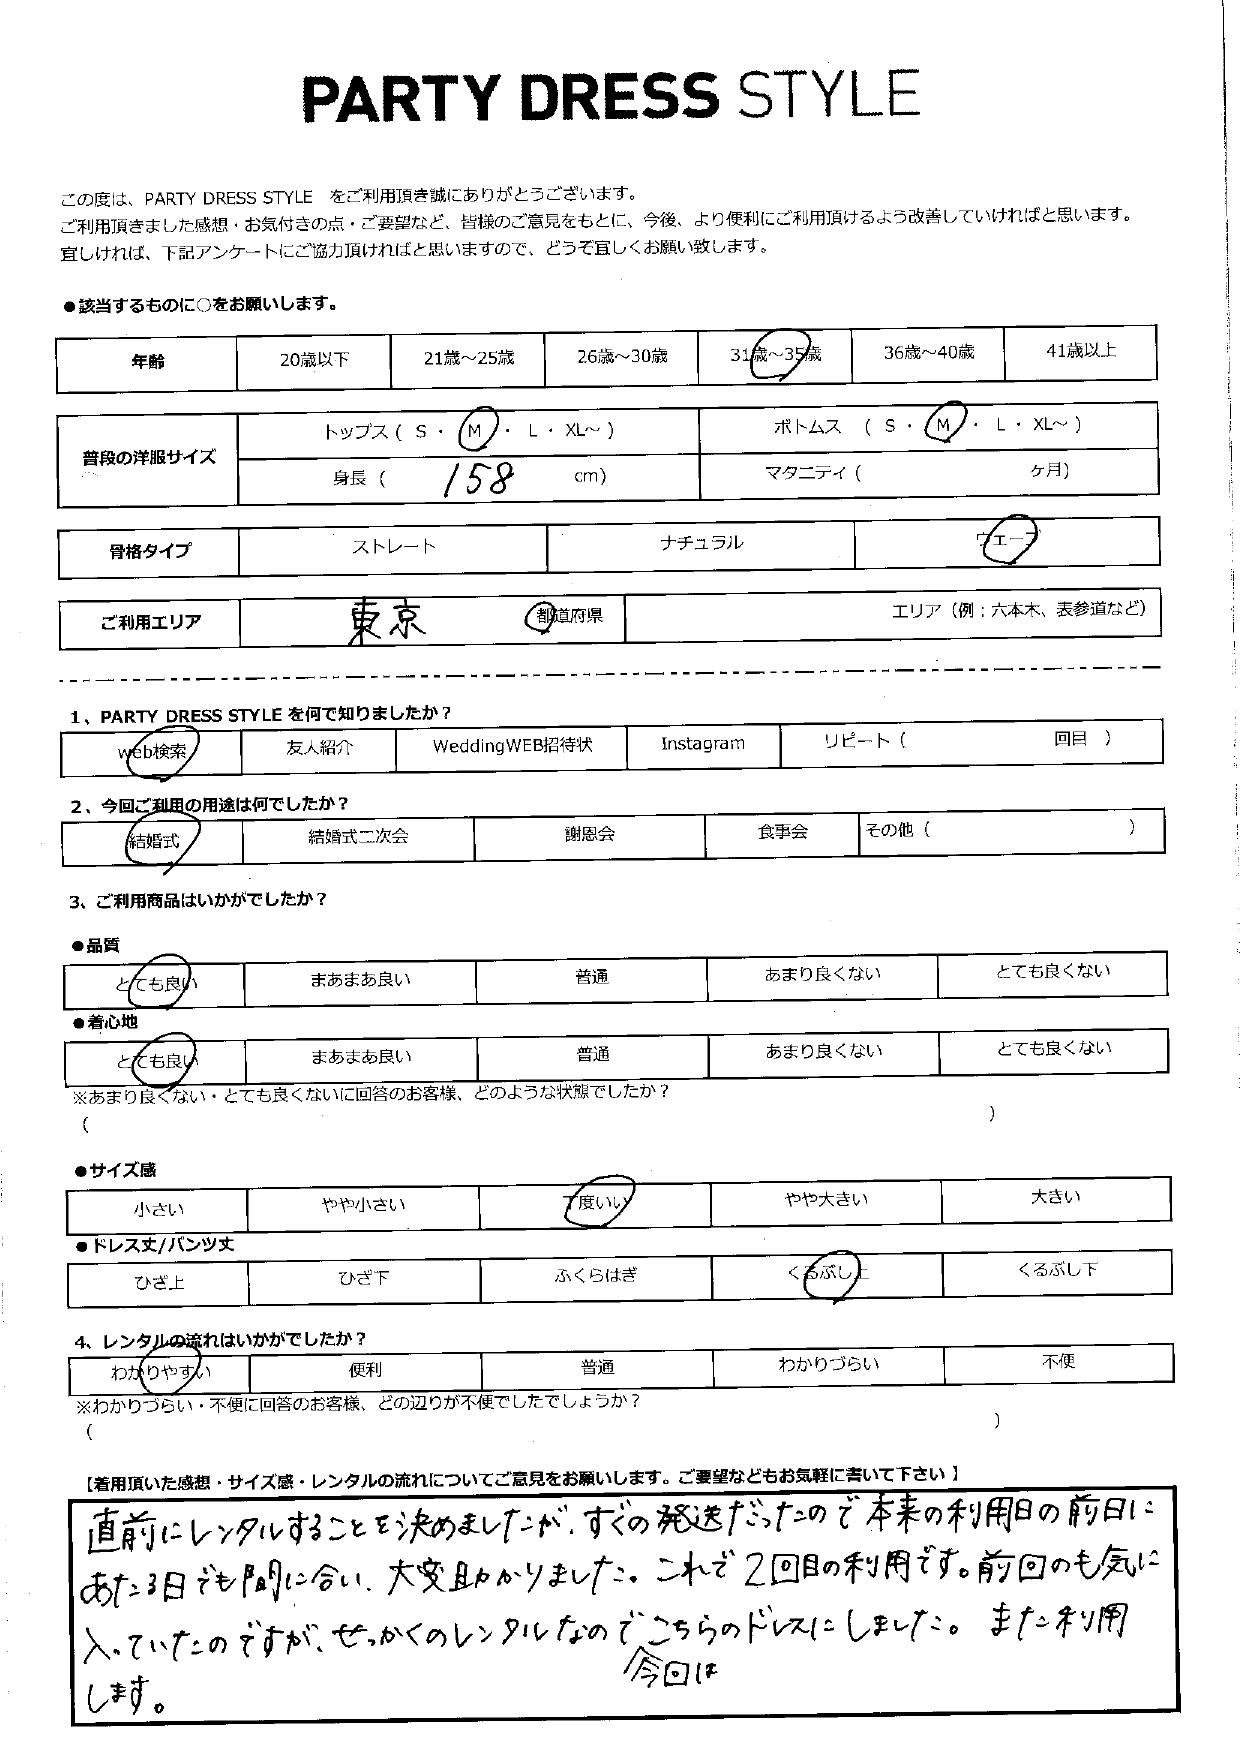 PARTY DRESS STYLE
この度は、PARTY DRESS STYLE をご利用頂き誠にありがとうございます。
ご利用頂きました感想・お気付きの点・ご要望など、皆様のご意見をもとに、今後、より便利にご利用頂けるよう改善していければと思います。
宜しければ、下記アンケートにご協力頂ければと思いますので、どうぞ宜しくお願い致します。
●該当するものに○をお願いします。
年齢 20歳以下 21歳～25歳 26歳～30歳 31歳～35歳 36歳～40歳 41歳以上
普段の洋服サイズ
トップス ( S ・ M ・ L ・ XL～ ) ボトムス ( S ・ M ・ L ・ XL～ )
身長 ( 158 cm) マタニティ ( ケ月)
骨格タイプ ストレート ナチュラル ウェーブ
ご利用エリア 東京 都道府県 エリア（例；六本木、表参道など）
1、PARTY DRESS STYLE を何で知りましたか？
web検索 友人紹介 WeddingWEB招待状 Instagram リピート ( 回目 )
2、今回ご利用の用途は何でしたか？
結婚式 結婚式二次会 謝恩会 食事会 その他 ( )
3、ご利用商品はいかがでしたか？
●品質
とても良い まあまあ良い 普通 あまり良くない とても良くない
●着心地
とても良い まあまあ良い 普通 あまり良くない とても良くない
※あまり良くない・とても良くないに回答のお客様、どのような状態でしたか？
( )
●サイズ感
小さい やや小さい 丁度いい やや大きい 大きい
●ドレス丈/パンツ丈
ひざ上 ひざ下 ふくらはぎ くるぶし上 くるぶし下
4、レンタルの流れはいかがでしたか？
わかりやすい 便利 普通 わかりづらい 不便
※わかりづらい・不便に回答のお客様、どの辺りが不便でしたでしょうか？
( )
【着用頂いた感想・サイズ感・レンタルの流れについてご意見をお願いします。ご要望などもお気軽に書いて下さい】
直前にレンタルすることを決めましたが、すぐの発送だったので本来の利用日の前日に
あたる日でも間に合い、大変助かりました。これで2回目の利用です。前回のも気に
入っていたのですが、せっかくのレンタルなのでこちらのドレスにしました。また利用
今回は
します。